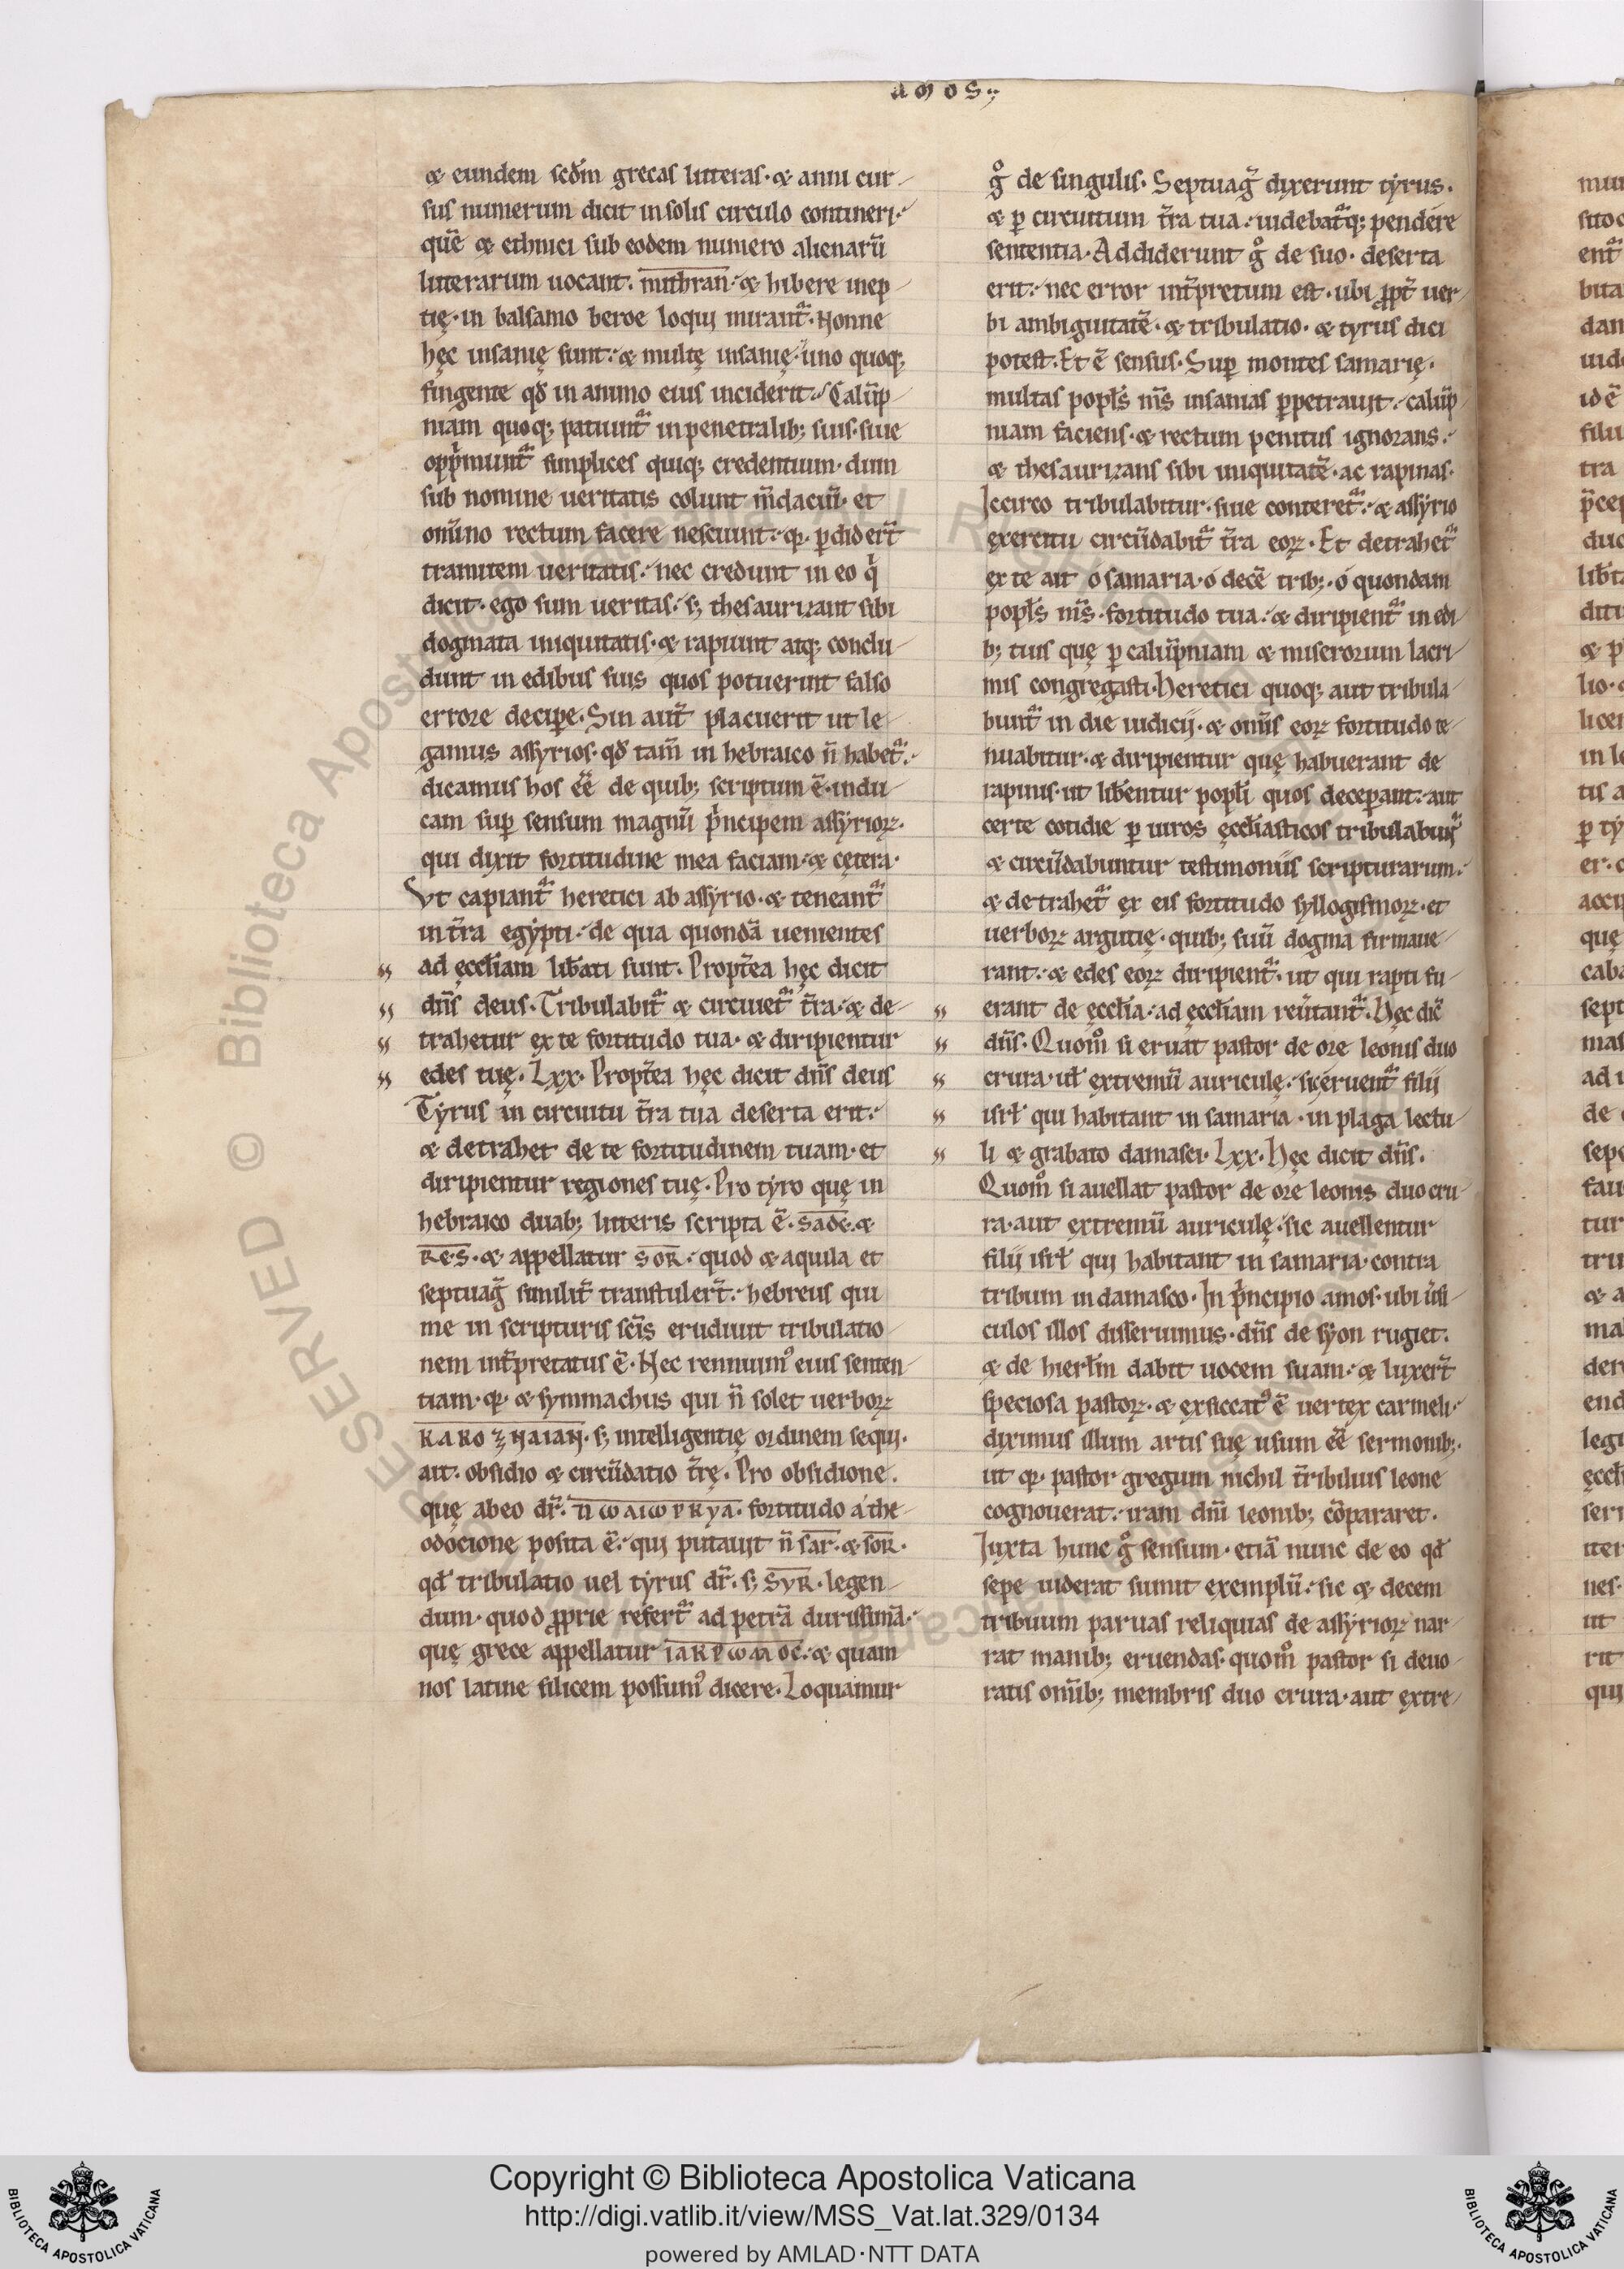 amos
& eundem scdm̃ grecas litteras· & anni cur-
sus numerum dicit in solis circulo contineri·
quẽ & ethnici sub eodem numero alienarũ
litterarum uocant· mithran· & hibere inep-
tię· in balsamo beroe loqui mirant̃· Nonne
hęc insanię sunt· & multę insanię· uno quoq;
fingente qđ in animo eius inciderit· Calũp-
niam quoq; patiunt̃ in penetralib; suis· siue
opp̃munt̃ simplices quiq; credentium· dum
sub nomine ueritatis colunt m̃daciũ· et
om̃ino rectum facere nesciunt· qꝛ ꝑdidert̃
tramitem ueritatis· nec credunt in eo q̃
dicit· ego sum ueritas· s; thesaurizant sibi
dogmata iniquitatis· & rapiunt atq; conclu-
dunt in edibus suis quos potuerint falso
errore deciꝑe· Sin aut̃ placuerit ut le-
gamus assyrios· qđ tam̃ in hebraico ñ habet̃·
dicamus hos eẽ de quib; scriptum ẽ· indu-
cam suꝑ sensum magnũ p̃ncipem assyrioꝝ·
qui dixit fortitudine mea faciam· & cętera·
Vt capiant̃ heretici ab assyrio· & teneant̃
in t̃ra egypti· de qua quondã uenientes
ad ęccłiam libãti sunt· Propt̃ea hęc dicit
dñs deus· Tribulabit̃ & circuiet̃ t̃ra· & de-
trahetur ex te fortitudo tua· & diripientur
edes tuę· Lxx· Propt̃ea hęc dicit dñs deus
Tyrus in circuitu t̃ra tua deserta erit·
& detrahet de te fortitudinem tuam· et
diripientur regiones tuę· Pro tyro quę in
hebraico duab; litteris scripta ẽ· sade· &
Res· & appellatur soR· quod & aquila et
septuag̃ similit̃ transtulert̃· hebreus qui
me in scripturis scĩs erudiuit tribulatio-
nem int̃pretatus ẽ· Nec rennuim᾽ eius senten-
tiam· qꝛ & symmachus qui ñ solet uerboꝝ
s; intelligentię ordinem sequi·
ait· obsidio & circũdatio t̃rę· Pro obsidione·
quę abeo dr̃· fortitudo a the-
odocione posita ẽ· qui putauit ñ sar· & soR·
qđ tribulatio uel tyrus dr̃· s; syR· legen-
dum· quod ꝓprie refert̃ ad petrã durissimã·
quę grece appellatur & quam
nos latine silicem possum᾽ dicere· Loquamur
g̊ de singulis· Septuag̃ dixerunt tyrus·
& ꝑ circuitum t̃ra tua· uidebat̃q; pendere
sententia· Addiderunt g̊ de suo· deserta
erit· nec error int̃pretum est· ubi ꝓpt̃ uer-
bi ambiguitatẽ· & tribulatio· & tyrus dici
potest· Et ẽ sensus· Suꝑ montes samarię·
multas popłs m̃s insanias ꝑpetrauit· calũp-
niam faciens· & rectum penitus ignorans·
& thesaurizans sibi iniquitatẽ· ac rapinas·
Iccirco tribulabitur· siue conteret̃· & assyrio
exercitu circũdabit̃ t̃ra eoꝝ· Et detrahet̃
ex te ait o samaria· o decẽ trib;· o quondam
popłs m̃s· fortitudo tua· & diripient̃ in edi-
b; tuis quę ꝑ calũpniam & miserorum lacri-
mis congregasti· heretici quoq; aut tribula-
bunt̃ in die iudicij· & om̃is eoꝝ fortitudo te-
nuabitur· & diripientur quę habuerant de
rapinis· ut libẽntur popłi quos deceperant· aut
certe cotidie ꝑ uiros ęccłiasticos tribulabunt̃
& circũdabuntur testimoniis scripturarum·
& detrahet̃ ex eis fortitudo syllogismoꝝ· et
uerboꝝ argutię· quib; suũ dogma firmaue-
rant· & edes eoꝝ diripient̃· ut qui rapti fu-
erant de ęccłia· ad ęccłiam reũtant̃· Hęc dic̃
dñs· Quom̊ si eruat pastor de ore leonis duo
crura· uł extremũ auriculę· sic eruent̃ filij
isrł qui habitant in samaria· in plaga lectu-
li & grabato damasci· Lxx· Hęc dicit dñs·
Quom̊ si auellat pastor de ore leonis duo cru-
ra· aut extremũ auriculę· sic auellentur
filij isrł qui habitant in samaria· contra
tribum in damasco· In p̃ncipio amos· ubi ũsi-
culos illos disseruimus· dñs de syon rugiet·
& de hierłm dabit uocem suam· & luxert̃
speciosa pastoꝝ· & exsiccat᾽ ẽ uertex carmeli·
diximus illum artis suę usum eẽ sermonib;·
ut qꝛ pastor gregum nichil t̃ribilius leone
cognouerat· iram dñi leonib; cõpararet·
Iuxta hunc g̊ sensum· etiã nunc de eo qđ
sepe uiderat sumit exemplũ· sic & decem
tribuum paruas reliquias de assyrioꝝ nar-
rat manib; eruendas· quom̊ pastor si deuo-
ratis om̃ib; membris duo crura· aut extre-
Copyright © Biblioteca Apostolica Vaticana
http://digi.vatlib.it/view/MSS_Vat.lat.329/0134
powered by AMLAD·NTT DATA